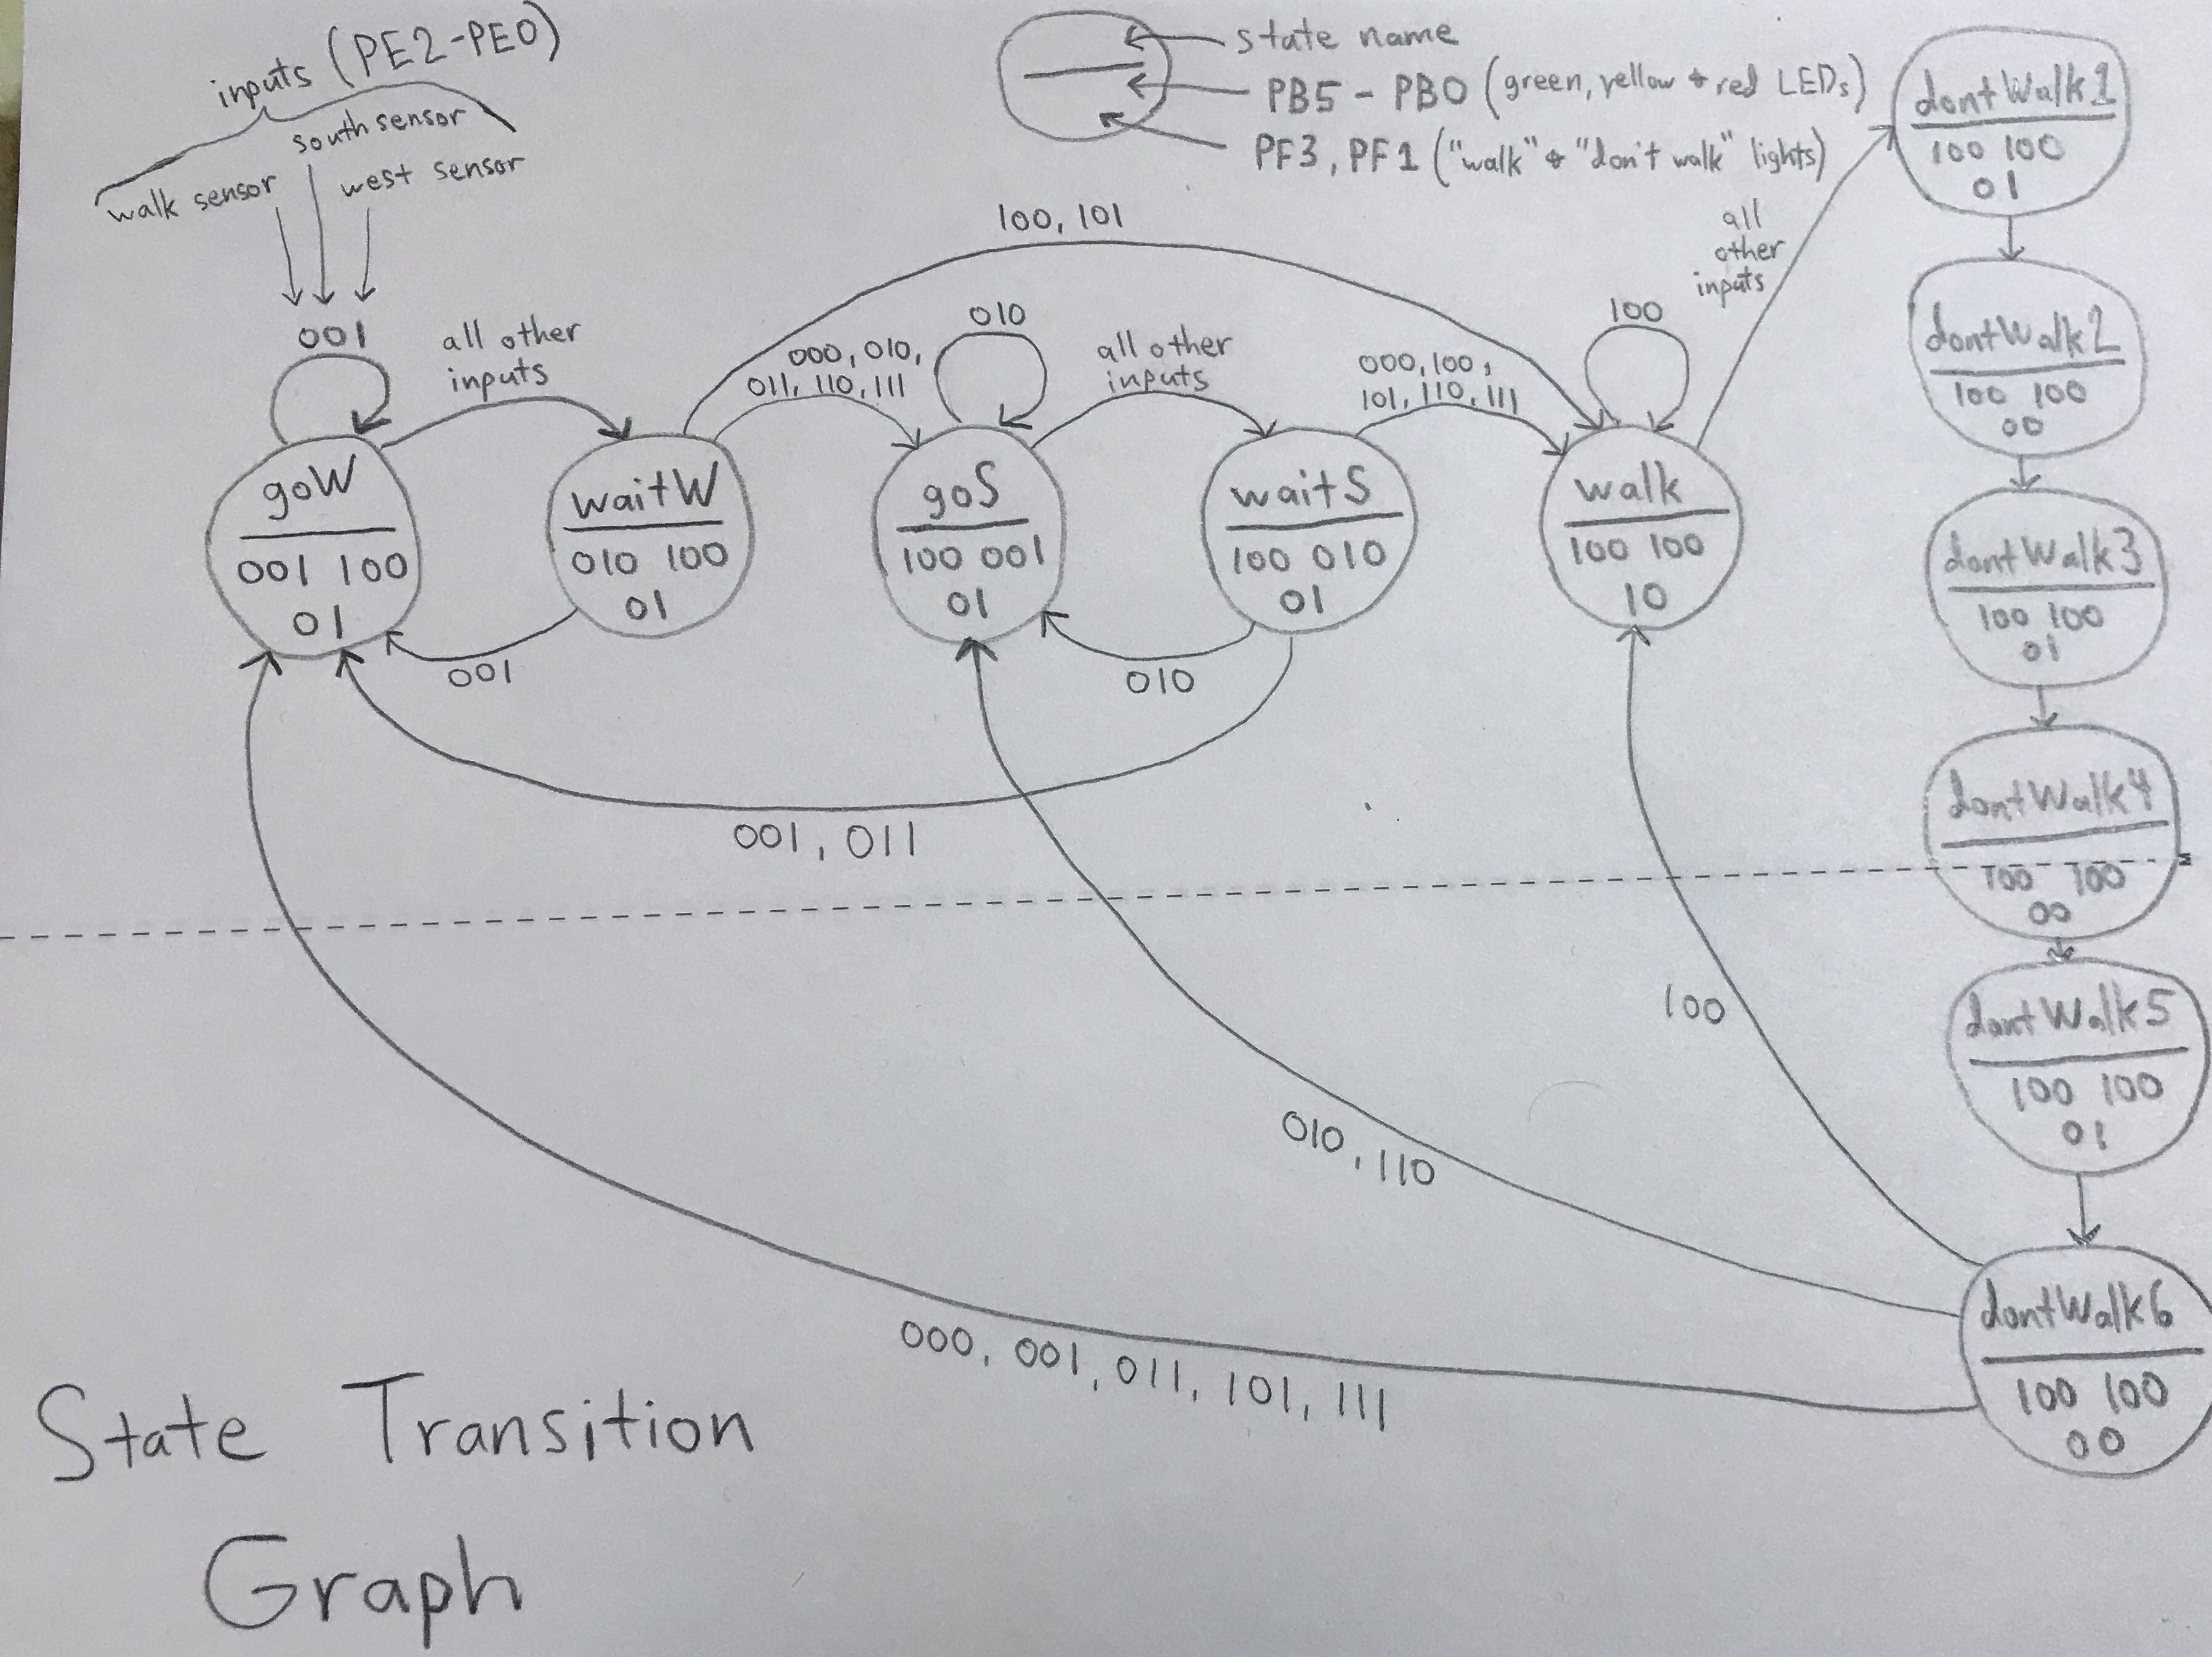 inputs (PE2-PE0)
walk sensor
south sensor
west sensor
state name
PB5 - PB0 (green, yellow + red LEDs)
PF3, PF1 ("walk" + "don't walk" lights)
001
all other
inputs
100, 101
000, 010,
011, 110, 111
010
all other
inputs
000, 100,
101, 110, 111
100
all
other
inputs
goW
001 100
01
waitW
010 100
01
goS
100 001
01
waitS
100 010
01
walk
100 100
10
001
010
001, 011
dontWalk1
100 100
01
dontWalk2
100 100
00
dontWalk3
100 100
01
dontWalk4
100 100
00
dontWalk5
100 100
01
dontWalk6
100 100
00
100
010, 110
000, 001, 011, 101, 111
State Transition
Graph